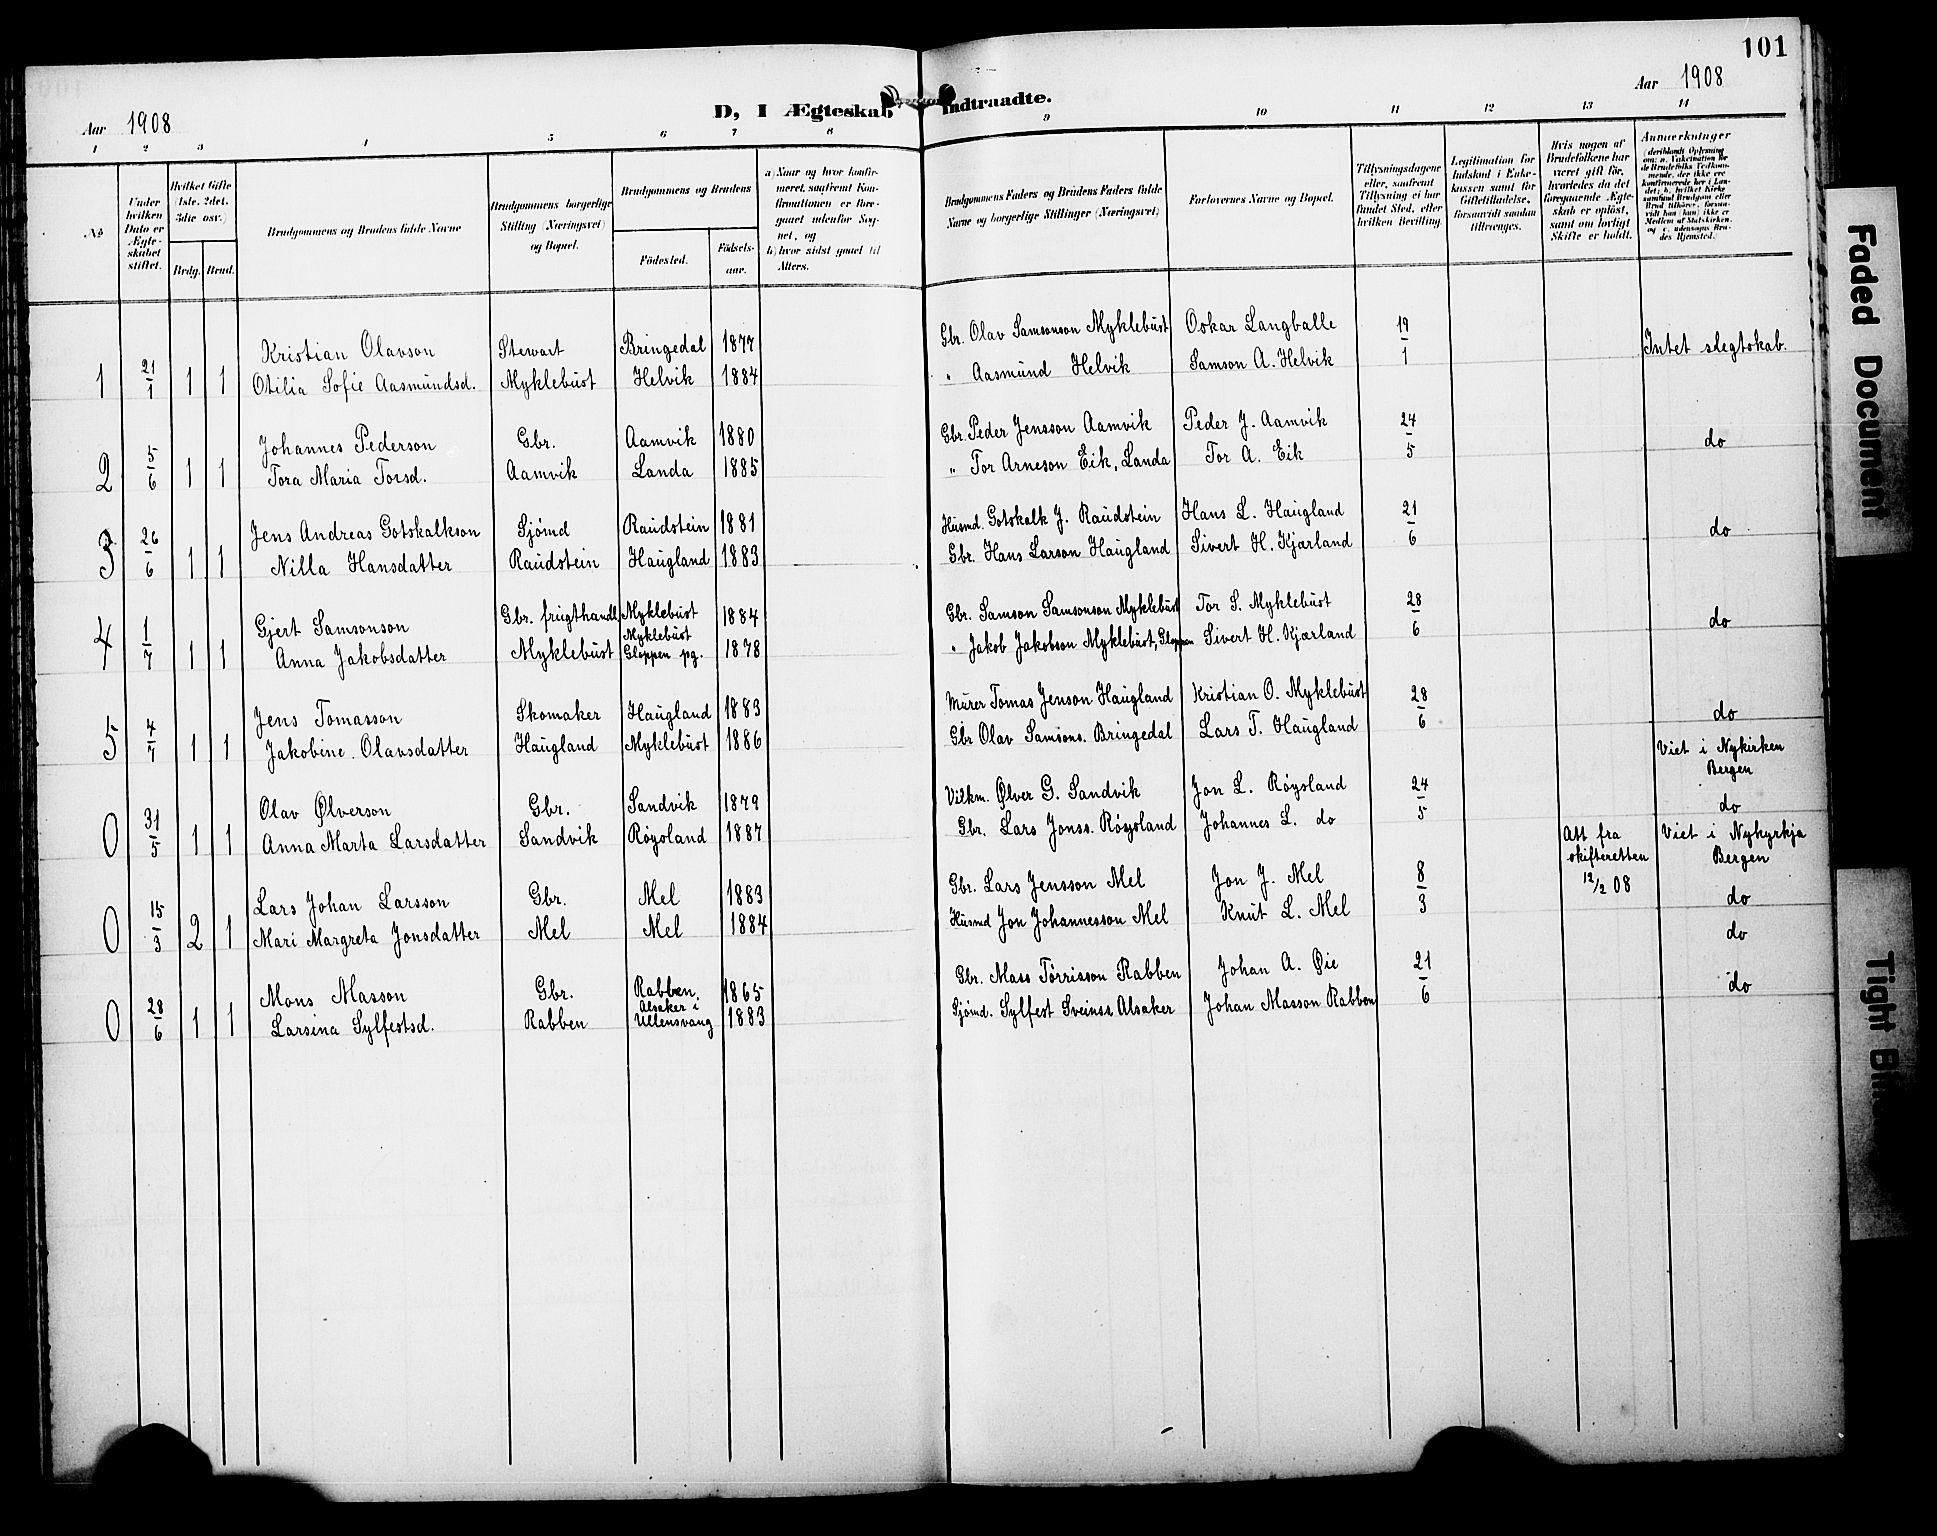 101
Aar 1908
Aar 1908
D, I Ægteskab Indtraadte.
1 2 3 4 5 6 7 8 9 10 11 12 13 14
No
Under hvilken Dato er Ægteskabet stiftet.
Hvilket Gifte (1ste. 2det. 3die osv.)
Brdg. Brud.
Brudgommens og Brudens fulde Navne
Brudgommens borgerlige Stilling (Næringsvei) og Bopæl.
Brudgommens og Brudens
Födested.
Födsels-aar.
a) Naar og hvor konfirmeret, saafremt Konfirmationen er foregaaet udenfor Sognet, og
b) hvor sidst gaaet til Alters.
Brudgommens Faders og Brudens Faders fulde Navne og borgerlige Stillinger (Næringsvei)
Forlovernes Navne og Bopæl.
Tillysningsdagene eller, saafremt Tillysning ei har fundet Sted, efter hvilken Bevilling
Legitimation for Indskud i Enkekassen samt for Giftetilladelse, forsaavidt saadan tiltrænges.
Hvis nogen af Brudefolkene har været gift för, hvorledes da det foregaaende Ægteskab er oplöst, samt om lovligt Skifte er holdt.
Anmærkninger
(deriblandt Oplysning om: a. Vakcination for de Brudefolks Vedkommende, der ikke ere konfirmerede her i Landet; b. hvilket Kirkesamfund Brudgom eller Brud tilhörer, forsaavidt han (hun) ikke er Medlem af Statskirken, og c. udensogns Brudes Hjemsted.)
1 21/1 1 1
Kristian Olavson Stewart Bringedal 1877 Gbr. Olav Samsonson Myklebust Oskar Langballe 19/1 Intet slegtskab.
Otilia Sofie Aasmundsd. Myklebust Helvik 1884 " Aasmund Helvik Samson A. Helvik
2 5/6 1 1
Johannes Pederson Gbr. Aamvik 1880 Gbr. Peder Jensson Aamvik Peder J. Aamvik 24/5 do
Tora Maria Torsd. Aamvik Landa 1885 " Tor Arneson Eik, Landa Tor A. Eik
3 26/6 1 1
Jens Andreas Gotskalkson Sjömd Raudstein 1881 Husmd. Gotskalk J. Raudstein Hans L. Haugland 21/6 do
Nilla Hansdatter Raudstein Haugland 1883 Gbr. Hans Larson Haugland Sivert H. Kjærland
4 1/7 1 1
Gjert Samsonson Gbr. frugthandl. Myklebust 1884 Gbr. Samson Samsonson Myklebust Tor S. Myklebust 28/6 do
Anna Jakobsdatter Myklebust Myklebust Gloppen pg. 1878 " Jakob Jakobson Myklebust, Gloppen Sivert H. Kjærland
5 4/7 1 1
Jens Tomasson Skomaker Haugland 1883 Murer Tomas Jenson Haugland Kristian O. Myklebust 28/6 do
Jakobine Olavsdatter Haugland Myklebust 1886 Gbr Olav Samsons. Bringedal Lars T. Haugland
Viet i Nykirken
Bergen
0 31/5 1 1
Olav Ølverson Gbr. Sandvik 1879 Vilkm. Ølver G. Sandvik Jon L. Røysland 24/5 do
Anna Marta Larsdatter Sandvik Røysland 1887 Gbr. Lars Jonss. Røysland Johannes L. do
Att fra
skifteretten
12/2 08
Viet i Nykyrkja
Bergen
0 15/3 2 1
Lars Johan Larsson Gbr. Mel 1883 Gbr. Lars Jensson Mel Jon J. Mel 8/3 do
Mari Margreta Jonsdatter Mel Mel 1884 Husmd Jon Johannesson Mel Knut L. Mel do
0 28/6 1 1
Mons Masson Gbr. Rabben 1865 Gbr. Mass Törrisson Rabben Johan A. Øie 21/6 do
Larsina Sylfestsd. Rabben Alsaker i Ullensvang 1883 Sjömd. Sylfest Sveinss Alsaker Johan Masson Rabben
Faded Document
Tight